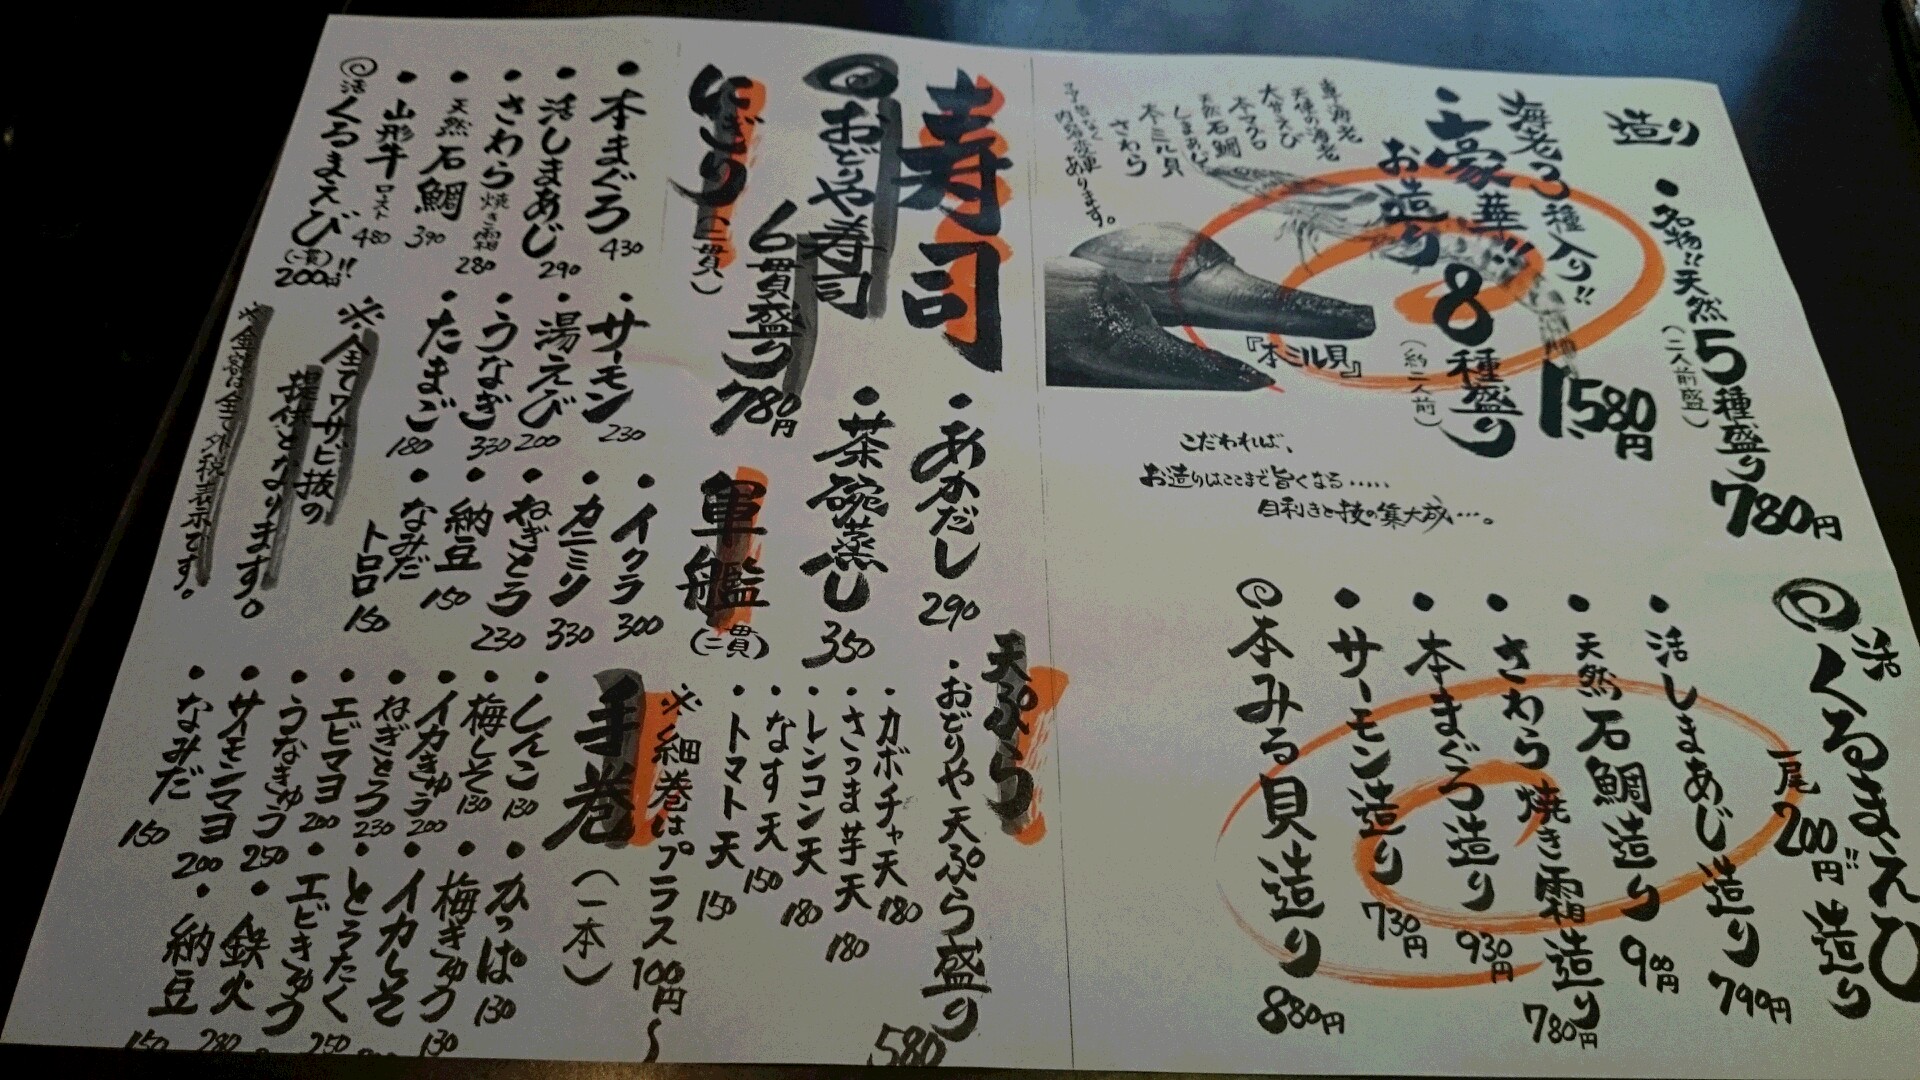 造り
・名物!!天然5種盛り 780円
(二人前盛)
海老3種入り!!
・豪華!!8種盛り 1,580円
お造り
(約二人前)
車海老
天使の海老
本マグロ
天然石鯛
しまあじ
本ミル貝
さわら
内容変更あります。
『本ミル貝』
こだわれば、
お造りはここまで旨くなる.....
目利きと技の集大成...。
活くるまえび造り
一尾200円!!
・活しまあじ造り 790円
・天然石鯛造り 900円
・さわら焼き霜造り 780円
・本まぐろ造り 930円
・サーモン造り 730円
本みる貝造り 880円
寿司
おどりや寿司
6貫盛り 780円
・あかだし 290
・茶碗蒸し 350
にぎり(二貫)
・本まぐろ 430
・活しまあじ 290
・さわら焼き霜 280
・天然石鯛 390
・山形牛ロースト 480
活くるまえび(一貫)200円!!
・サーモン 230
・湯えび 200
・うなぎ 330
・たまご 180
※全てワサビ抜の
提供となります。
※金額は全て外税表示です。
軍艦(二貫)
・イクラ 300
・カニミソ 330
・ねぎとろ 230
・納豆 150
・なみだ
トロロ 150
天ぷら
・おどりや天ぷら盛り 580
・カボチャ天 180
・さつま芋天 180
・レンコン天 180
・なす天 150
・トマト天 150
※細巻はプラス100円〜
手巻(一本)
・しんこ 130
・梅しそ 130
・イカきゅう 200
・ねぎとろ 230
・エビマヨ 200
・うなきゅう 250
・サーモンマヨ 200
・なみだ 150
・かっぱ 130
・梅きゅう 130
・イカしそ
・とろたく 250
・エビきゅう
・鉄火 280
・納豆 150